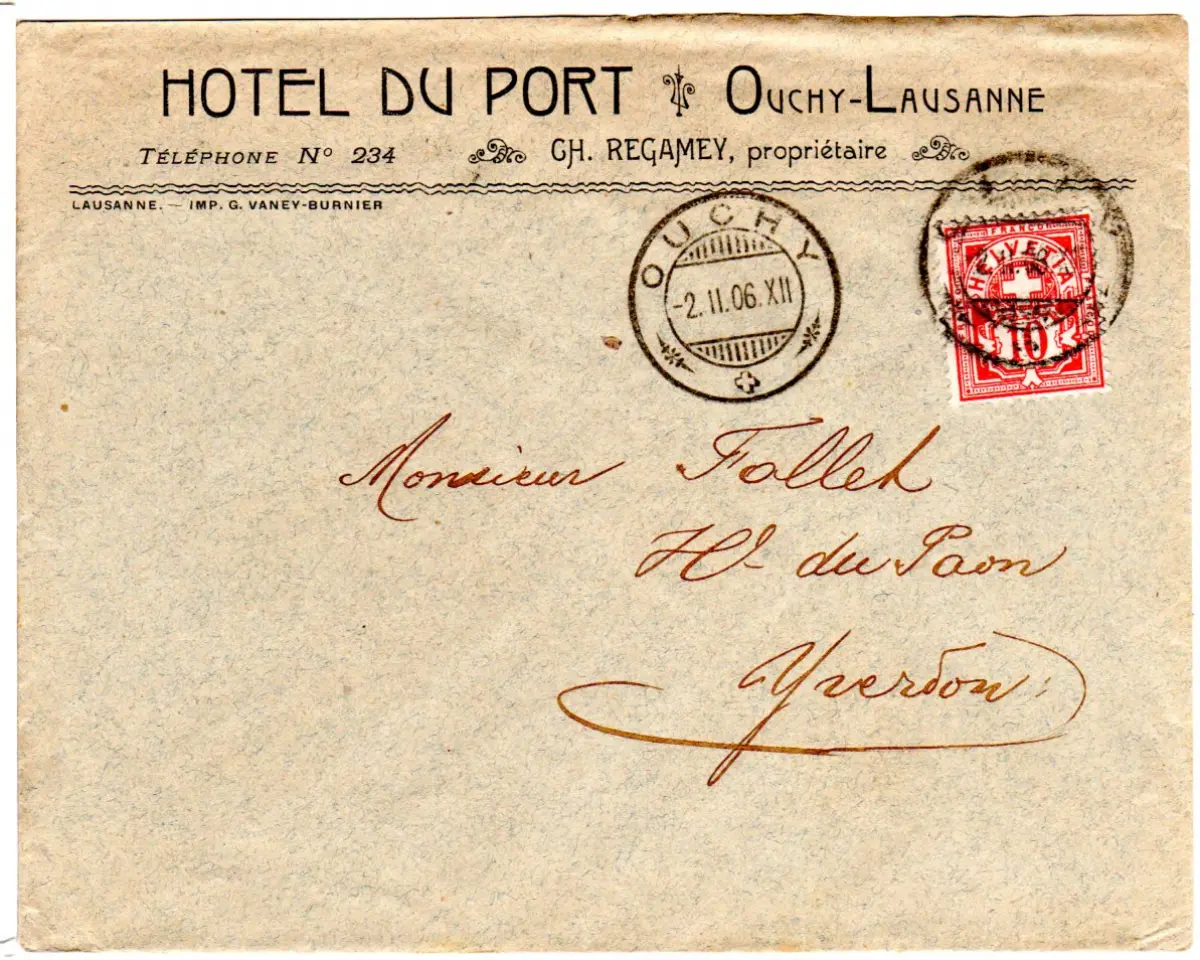 HOTEL DU PORT OUCHY-LAUSANNE
TÉLÉPHONE Nº 234 CH. REGAMEY, propriétaire
LAUSANNE. — IMP. G. VANEY-BURNIER
OUCHY
-2.II.06.XII
FRANCO
HELVETIA
10
Monsieur Follet
Hl du Paon
Yverdon